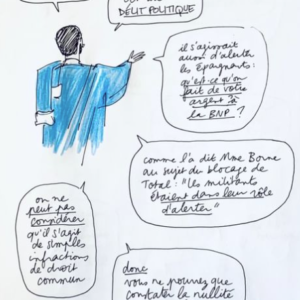 DÉLIT POLITIQUE
il s'agissait
aussi d'alerter
les Épargnants :
qu'est-ce qu'on
fait de votre
argent à
la BNP ?
comme l'a dit Mme Borne
au sujet du blocage de
Total : "les militants
étaient dans leur rôle
d'alerter"
on ne
peut pas
considérer
qu'il s'agit
de simples
infractions
de droit
commun
donc
vous ne pourrez que
constater la nullité